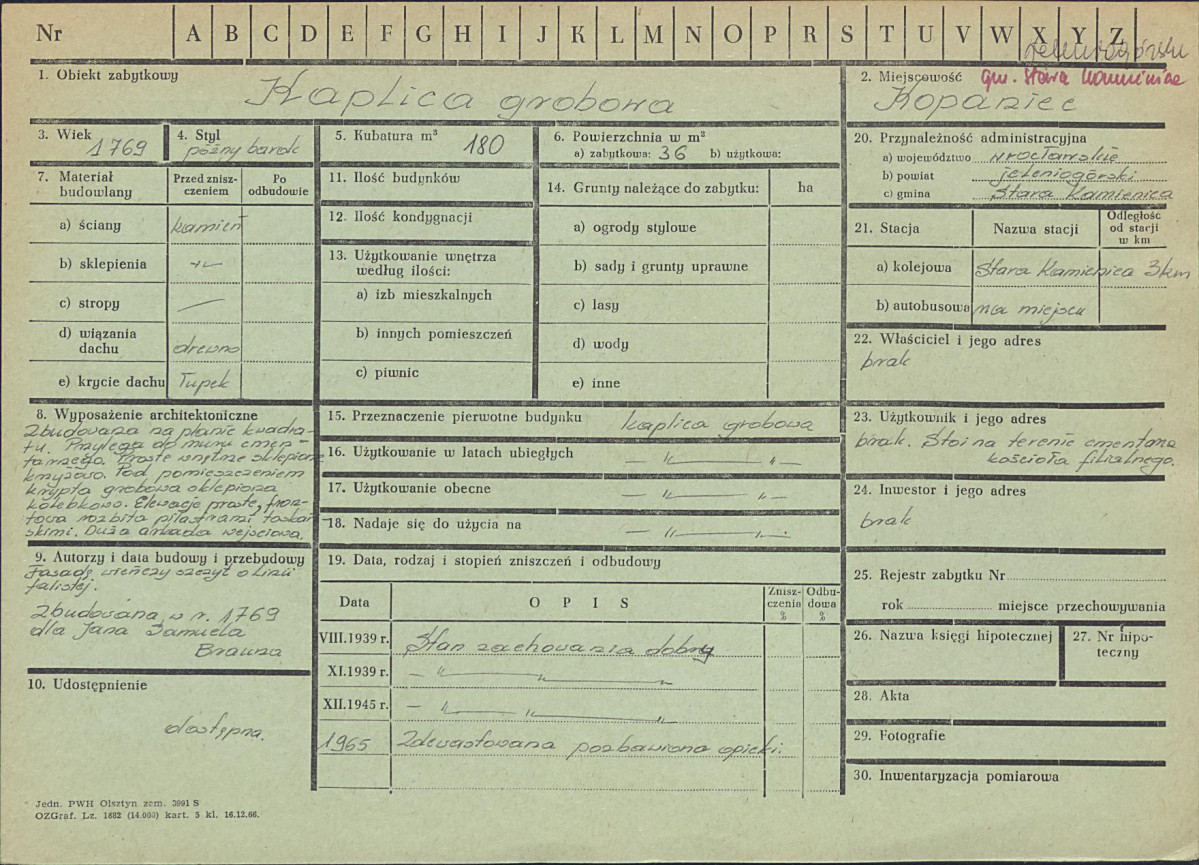 Nr A B C D E F G H I J K L M N O P R S T U V W X Y Z
1. Obiekt zabytkowy
Kaplica grobowa
2. Miejscowość gm. Stara Kamienica
Kopaniec
3. Wiek
1769
4. Styl
późny barok
5. Kubatura m³
180
6. Powierzchnia w m²
a) zabytkowa: 36 b) użytkowa:
7. Materiał budowlany
Przed zniszczeniem
Po odbudowie
a) ściany kamień
b) sklepienia -"-
c) stropy —
d) wiązania dachu drewno
e) krycie dachu łupek
8. Wyposażenie architektoniczne
Zbudowana na planie kwadra-
tu. Przylega do muru cmen-
tarnego. Proste wnętrze sklepione
krzyżowo. Pod pomieszczeniem
krypta grobowa sklepiona
kolebkowo. Elewacje proste, fron-
towa rozbita pilastrami toskań-
skimi. Duża arkada wejściowa.
9. Autorzy i data budowy i przebudowy
Fasadę wieńczy szczyt o linii
falistej.
Zbudowana w r. 1769
dla Jana Samuela
Brauna
10. Udostępnienie
dostępna.
11. Ilość budynków
12. Ilość kondygnacji
13. Użytkowanie wnętrza
według ilości:
a) izb mieszkalnych
b) innych pomieszczeń
c) piwnic
14. Grunty należące do zabytku: ha
a) ogrody stylowe
b) sady i grunty uprawne
c) lasy
d) wody
e) inne
15. Przeznaczenie pierwotne budynku kaplica grobowa
16. Użytkowanie w latach ubiegłych — " — " —
17. Użytkowanie obecne — " — " —
18. Nadaje się do użycia na — " — " —
19. Data, rodzaj i stopień zniszczeń i odbudowy
Data OPIS Zniszczenia % Odbudowa %
VIII.1939 r. Stan zachowania dobry
XI.1939 r. — " — " — " —
XII.1945 r. — " — " — " —
1965 Zdewastowana pozbawiona opieki.
20. Przynależność administracyjna
a) województwo wrocławskie
b) powiat jeleniogórski
c) gmina Stara Kamienica
21. Stacja Nazwa stacji Odległość od stacji w km
a) kolejowa Stara Kamienica 3 km
b) autobusowa na miejscu
22. Właściciel i jego adres
brak
23. Użytkownik i jego adres
brak. Stoi na terenie cmentarza
kościoła filialnego.
24. Inwestor i jego adres
brak
25. Rejestr zabytku Nr
rok miejsce przechowywania
26. Nazwa księgi hipotecznej
27. Nr hipoteczny
28. Akta
29. Fotografie
30. Inwentaryzacja pomiarowa
Jedn. PWH Olsztyn zam. 3991 S
OZGraf. Lz. 1882 (14.000) kart. 5 kl. 16.12.66.